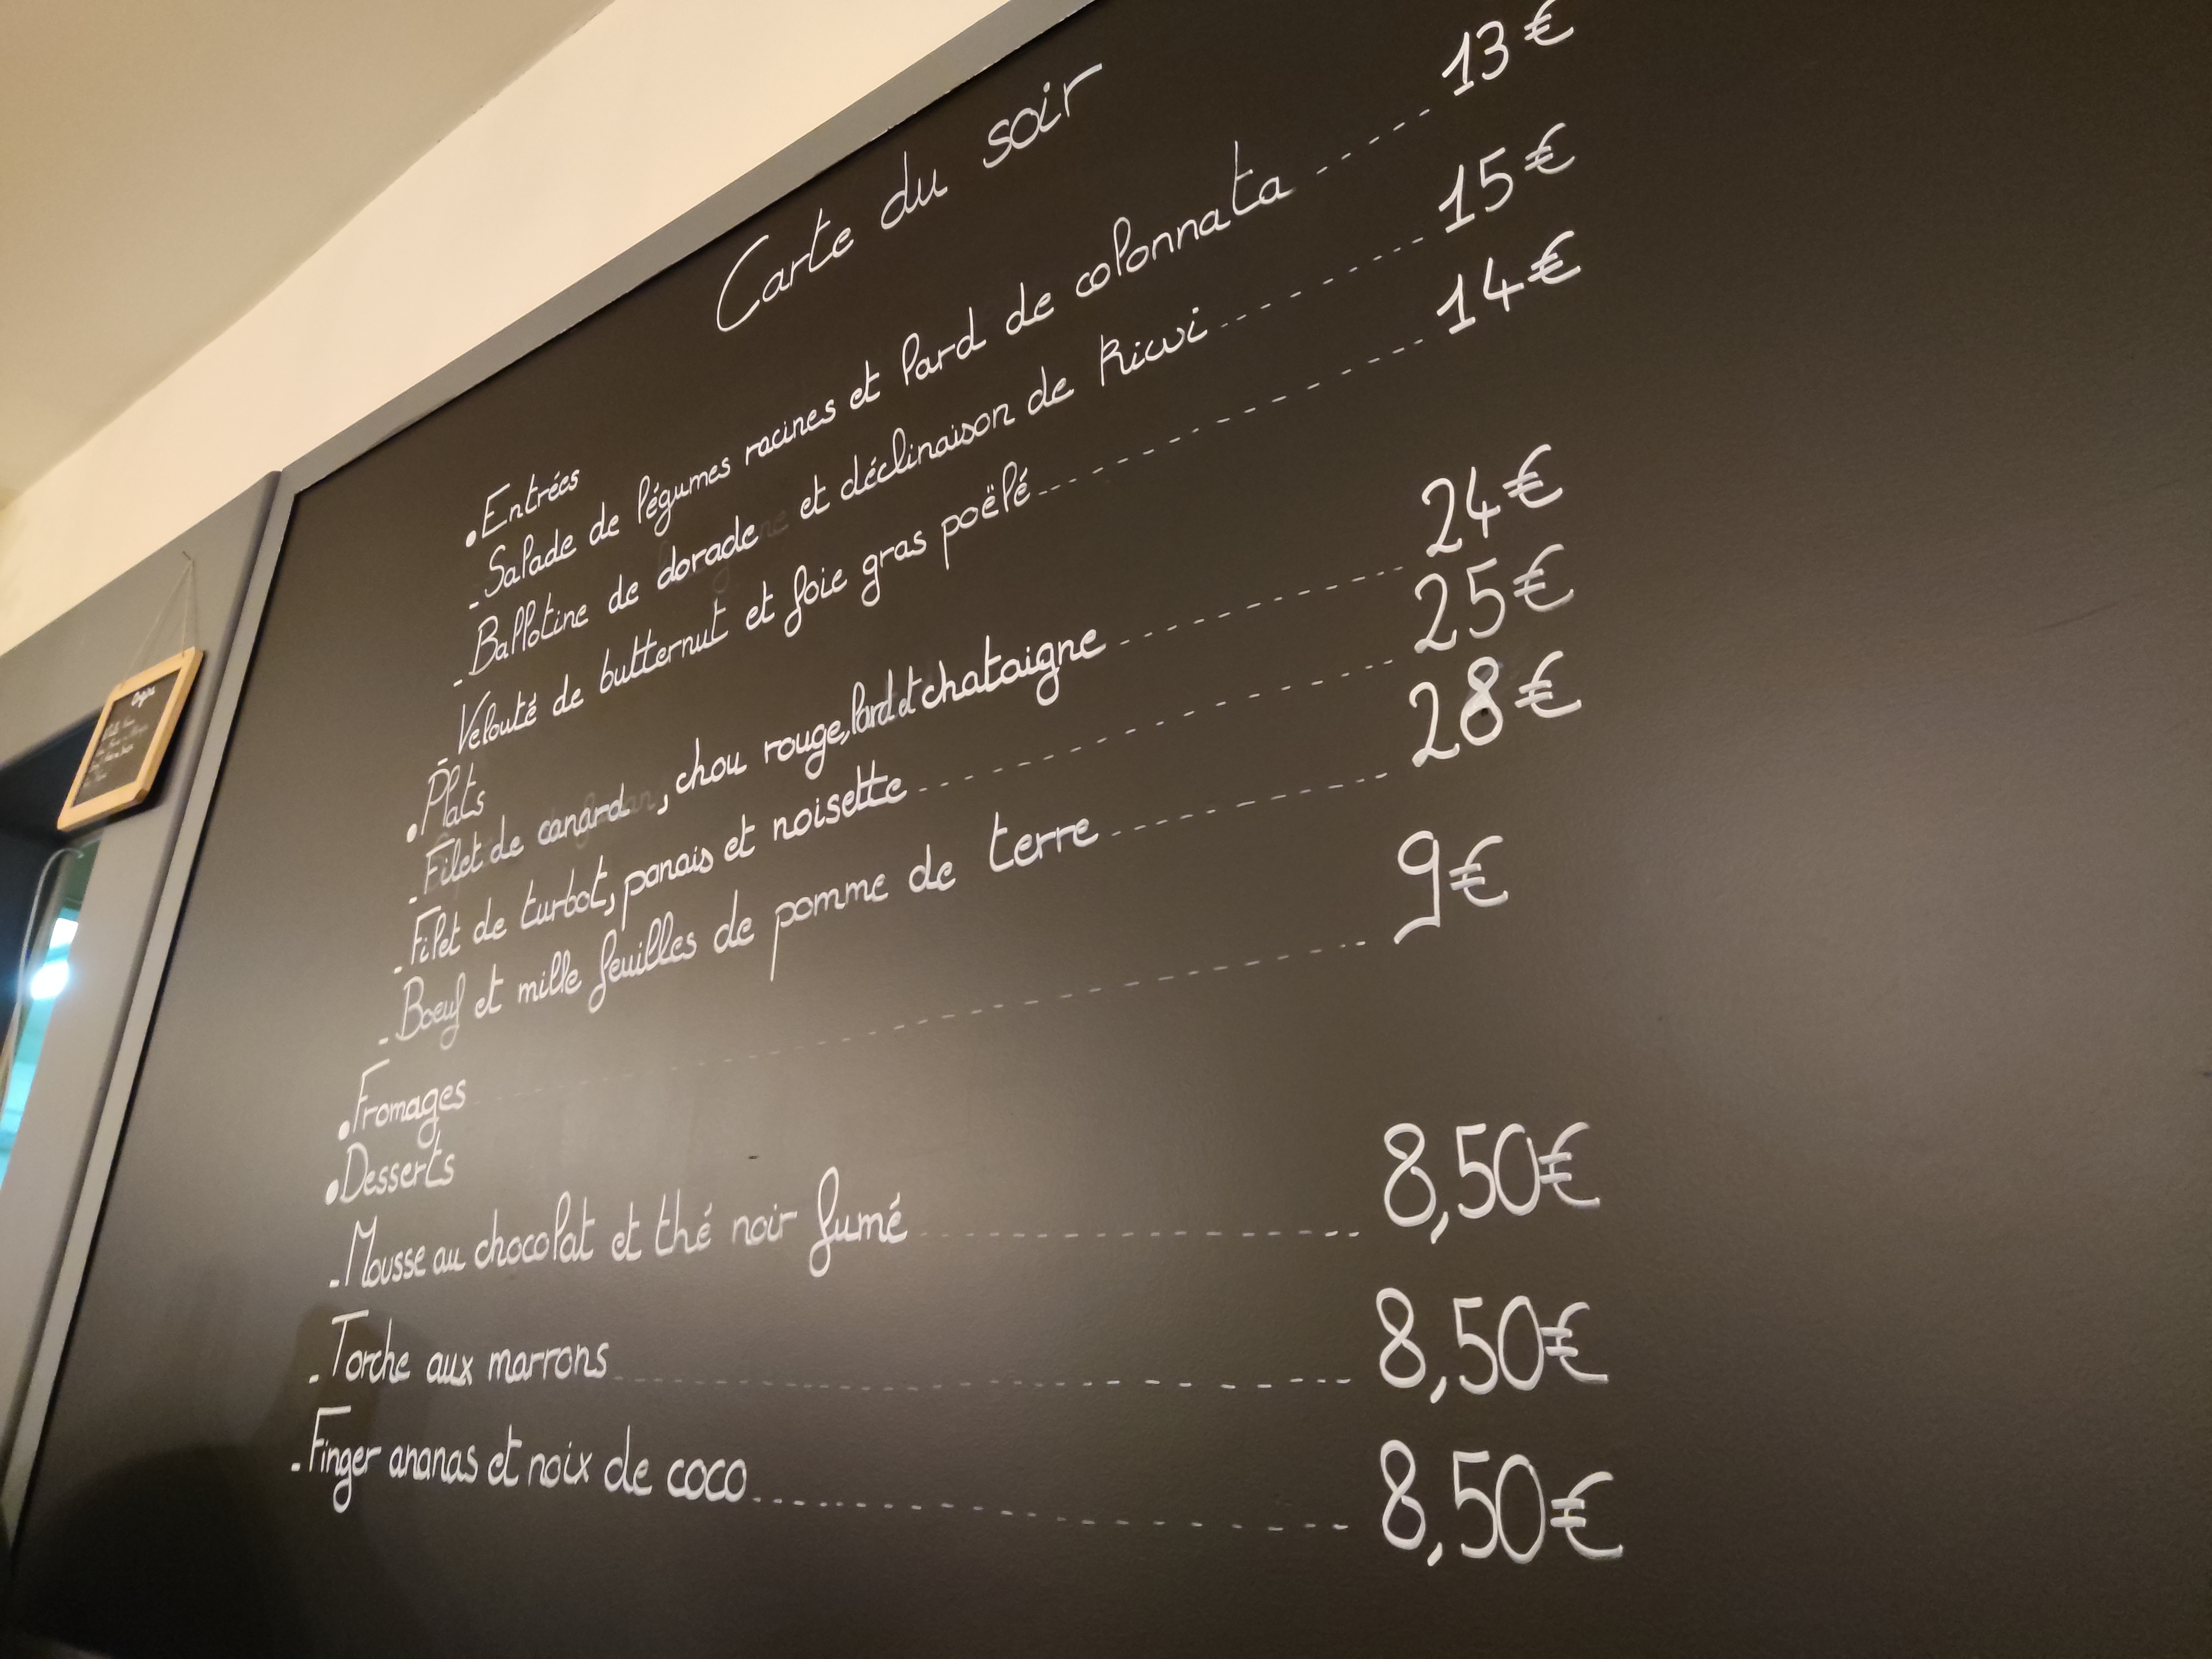 Carte du soir
• Entrées
- Salade de légumes racines et lard de colonnata ------ 13€
- Ballotine de dorade et déclinaison de kiwi ------ 15€
- Velouté de butternut et foie gras poëlé ------ 14€
• Plats
- Filet de canard, chou rouge, lard et chataigne ------ 24€
- Filet de turbot, panais et noisette ------ 25€
- Boeuf et mille feuilles de pomme de terre ------ 28€
• Fromages ------ 9€
• Desserts
- Mousse au chocolat et thé noir fumé ------ 8,50€
- Torche aux marrons ------ 8,50€
- Finger ananas et noix de coco ------ 8,50€